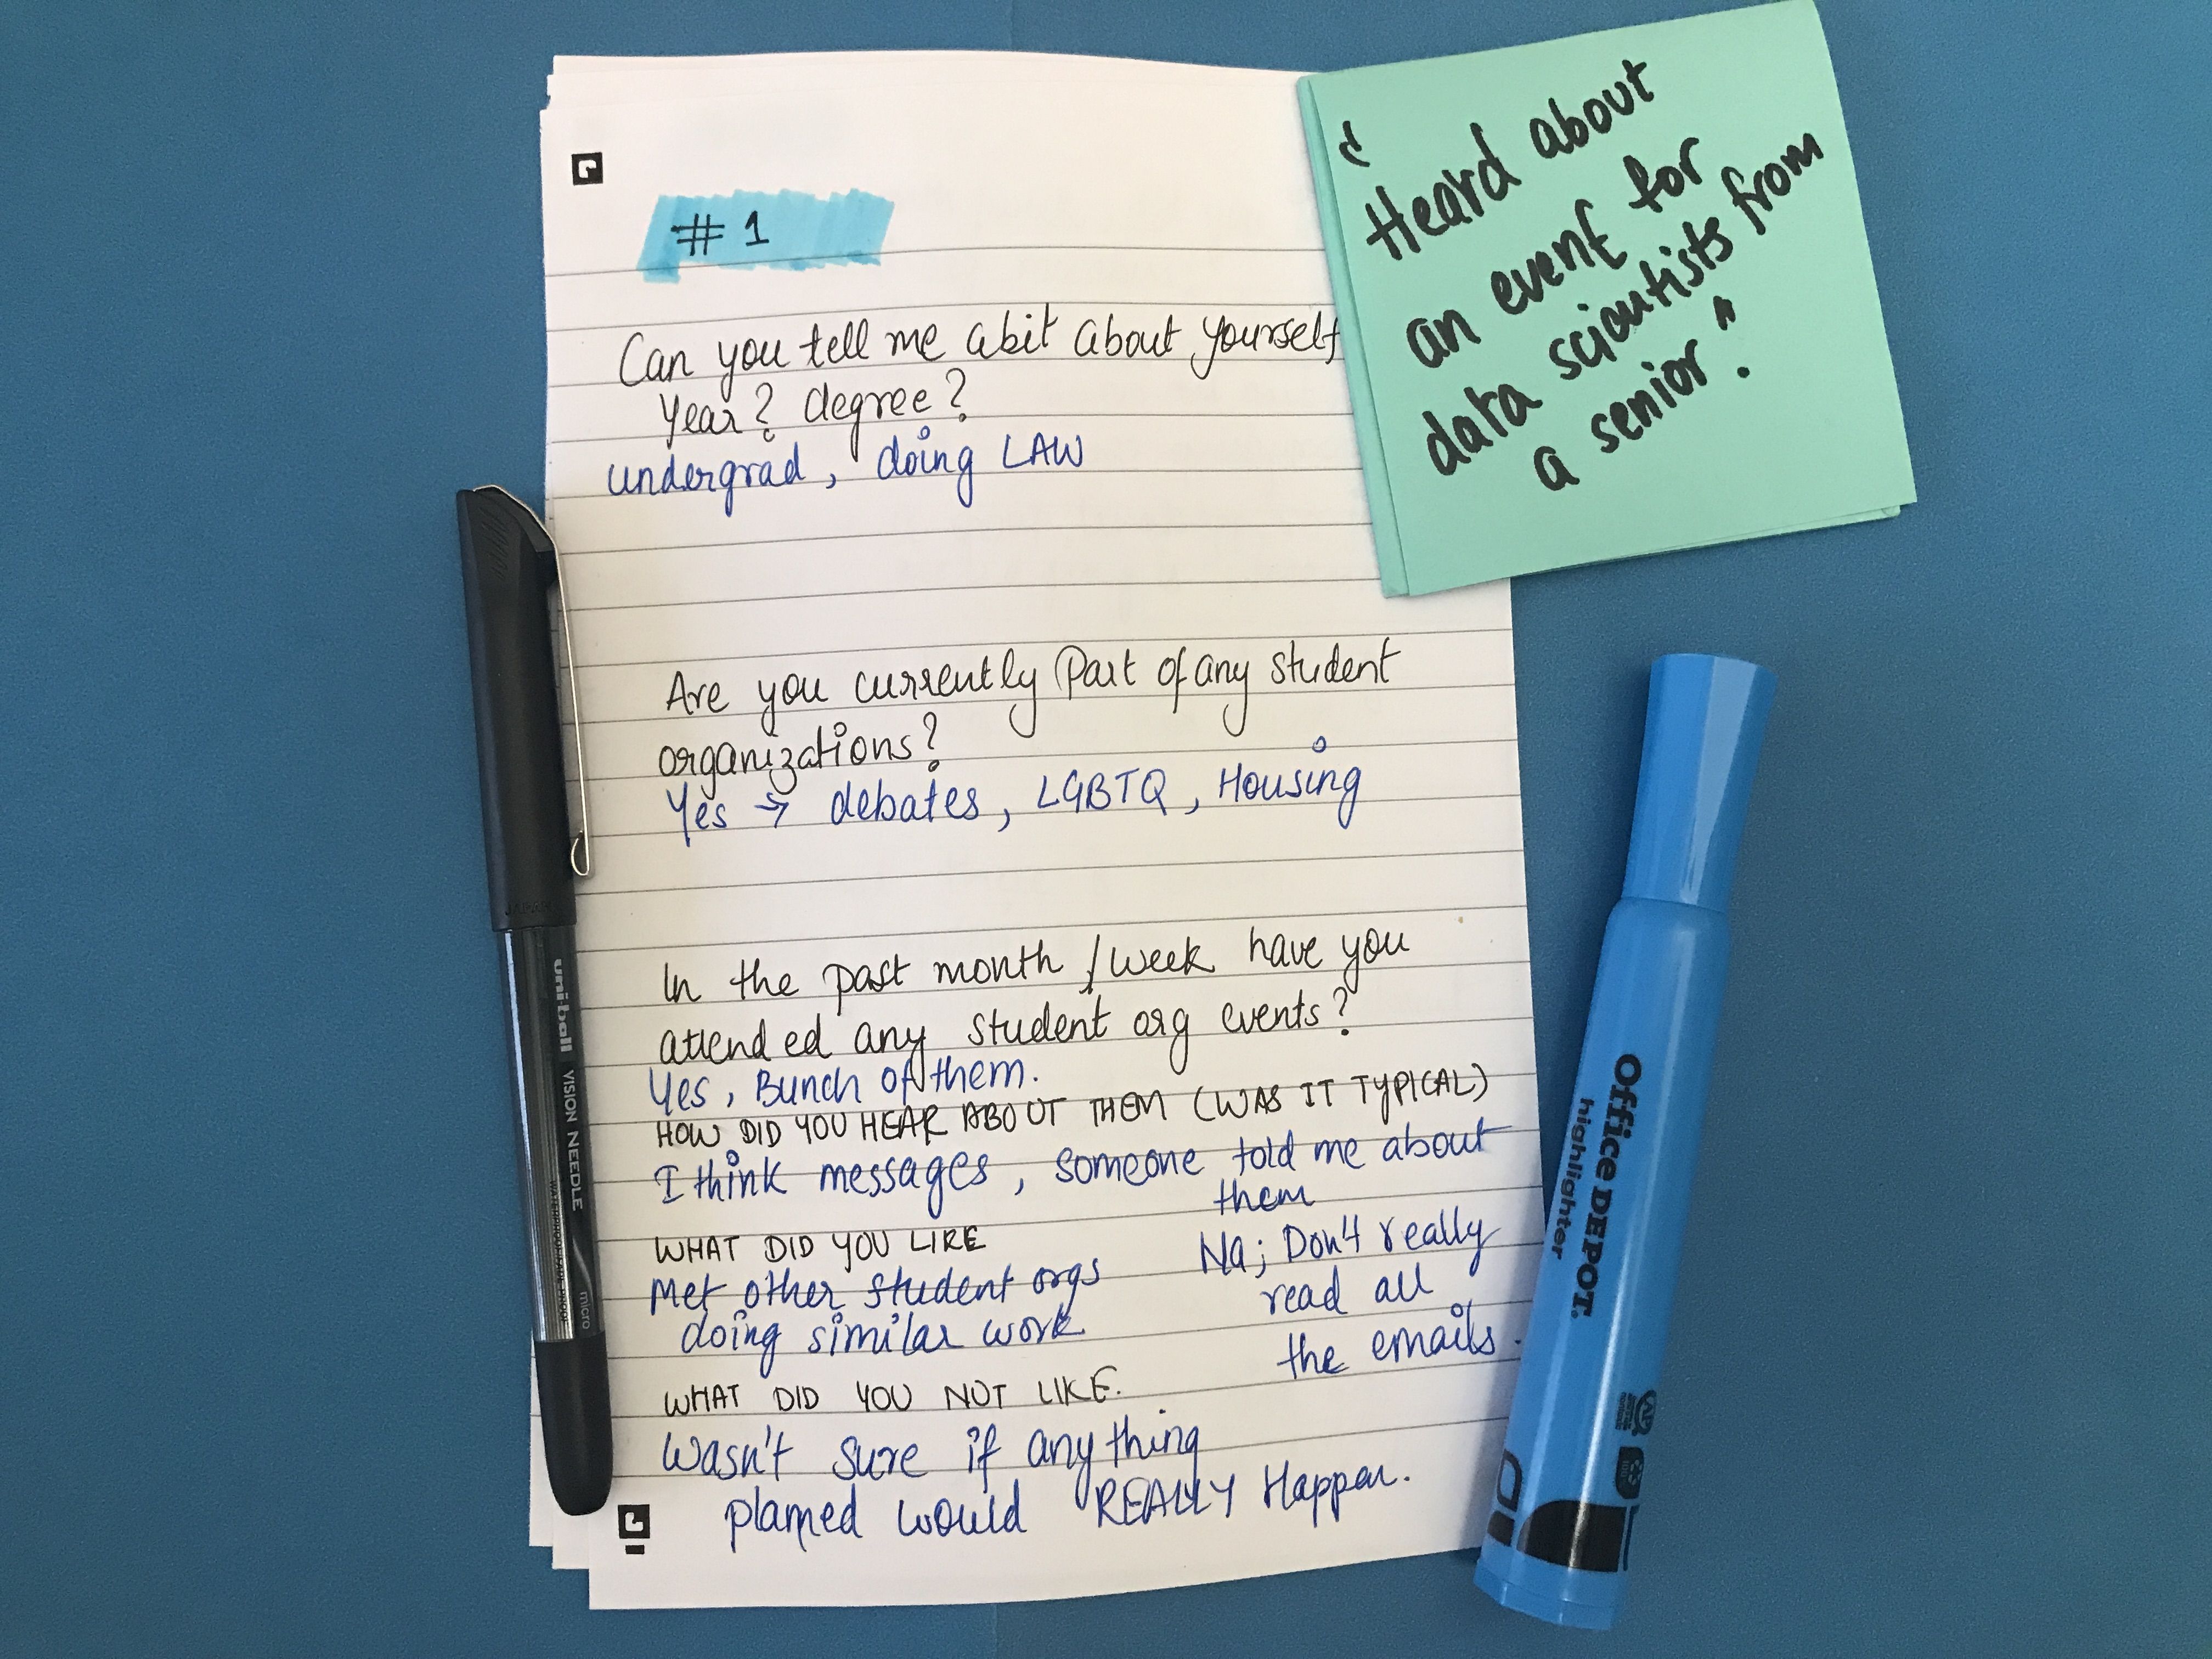 #1
Can you tell me abit about yourself
year? degree?
undergrad, doing LAW
Are you currently Part of any student
organizations?
Yes → debates, LGBTQ, Housing
In the past month/week have you
attended any student org events?
Yes, Bunch of them.
HOW DID YOU HEAR ABOUT THEM (WAS IT TYPICAL)
I think messages, someone told me about
them
WHAT DID YOU LIKE
Met other student orgs
doing similar work
Na; Don't really
read all
the emails.
WHAT DID YOU NOT LIKE.
Wasn't sure if anything
planned would REALLY Happen.
"Heard about
an event for
data scientists from
a senior."
uni-ball VISION NEEDLE micro
WATERPROOF/FADE-PROOF
Office DEPOT.
highlighter